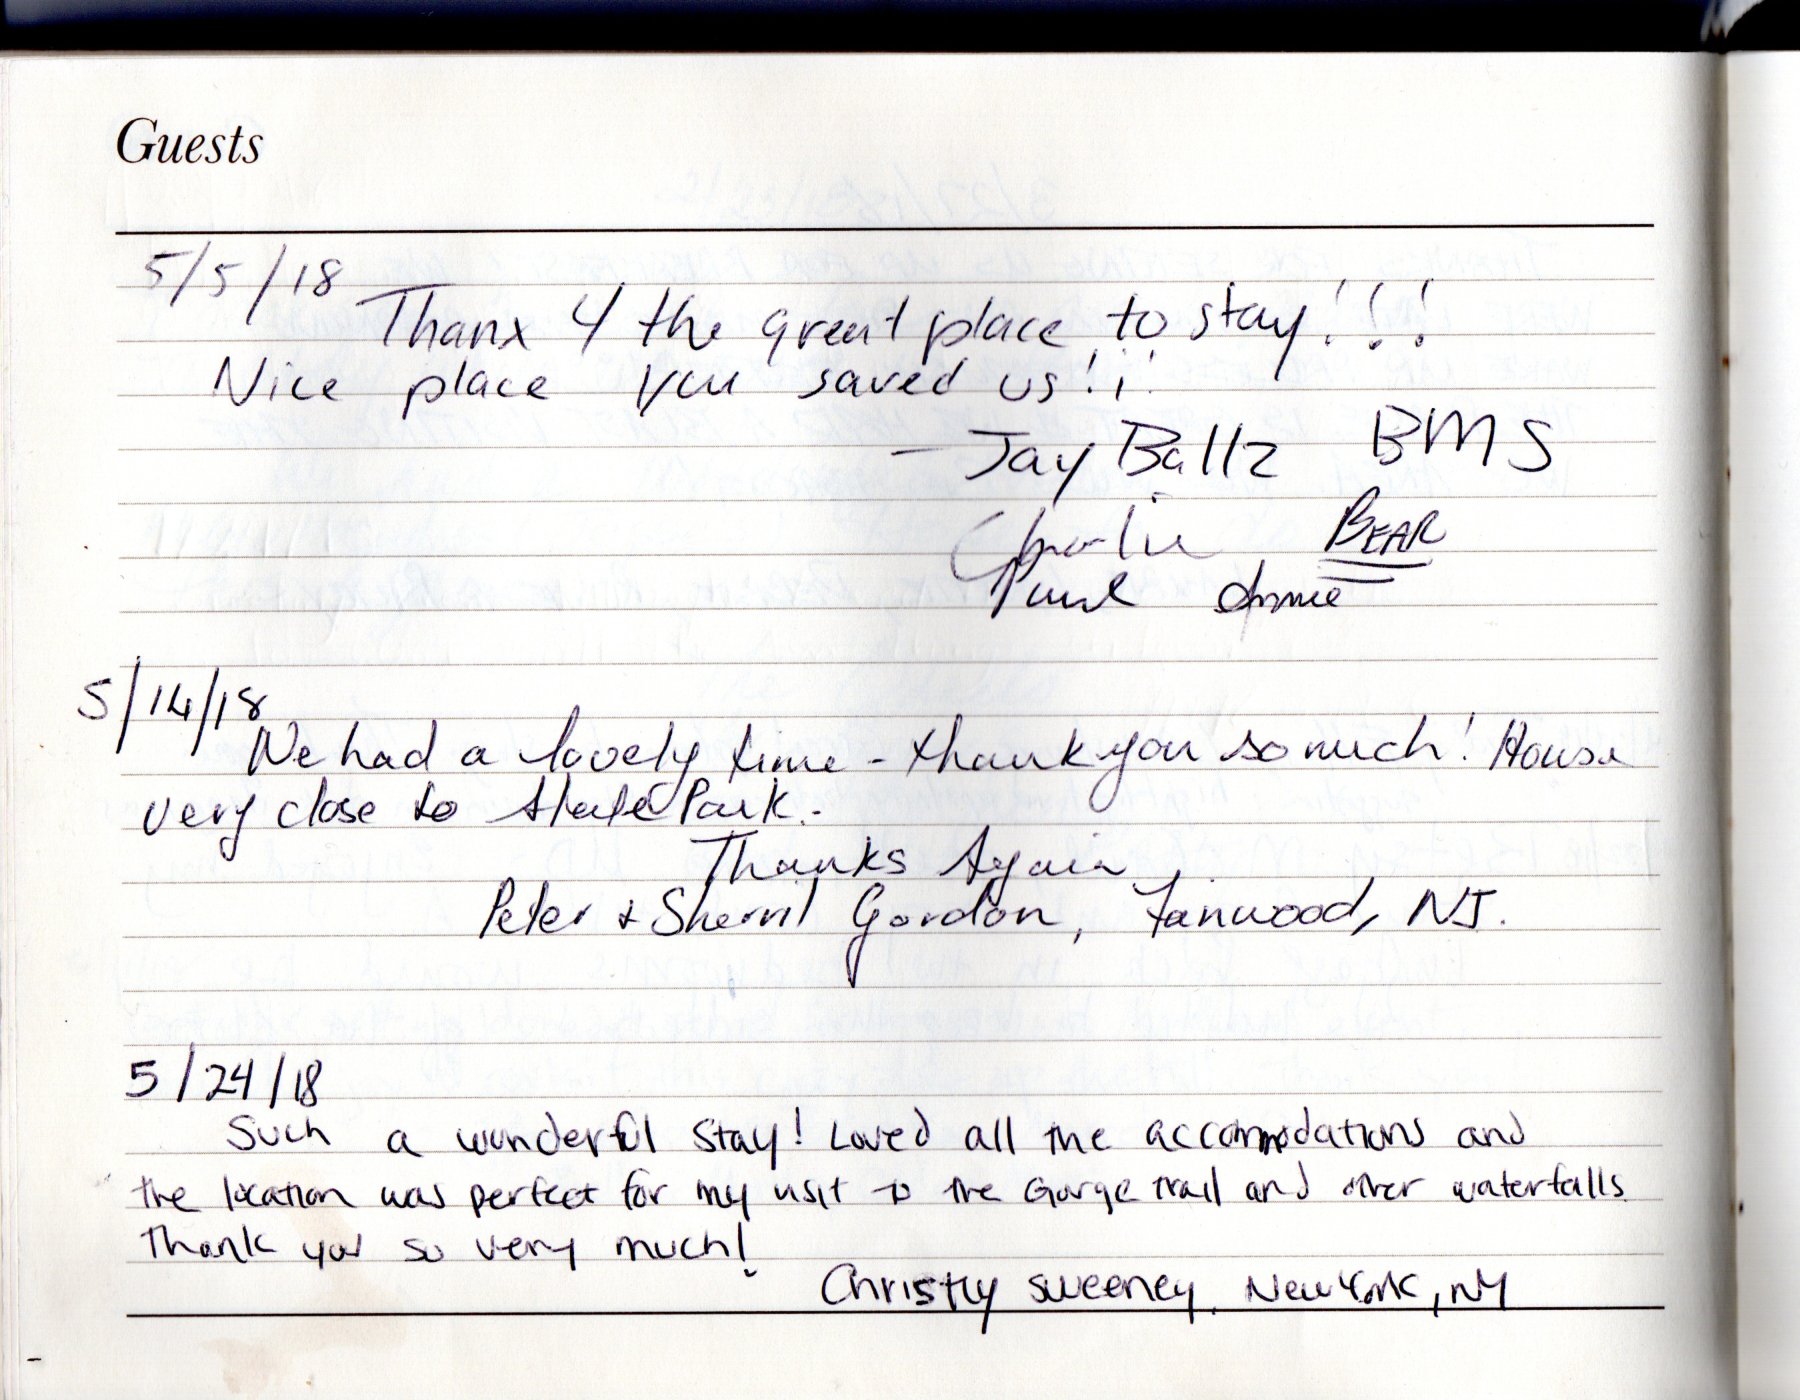 Guests
5/5/18
Thanx 4 the great place to stay!!!
Nice place you saved us!!!
- Jay Ballz BMS
Charlie BEAR
Paul Annie
5/14/18
We had a lovely time - thank you so much! House
very close to State Park.
Thanks Again
Peter & Sherril Gordon, Fanwood, NJ.
5/24/18
Such a wonderful stay! Loved all the accommodations and
the location was perfect for my visit to the Gorge trail and other waterfalls.
Thank you so very much!
Christy Sweeney, New York, NY